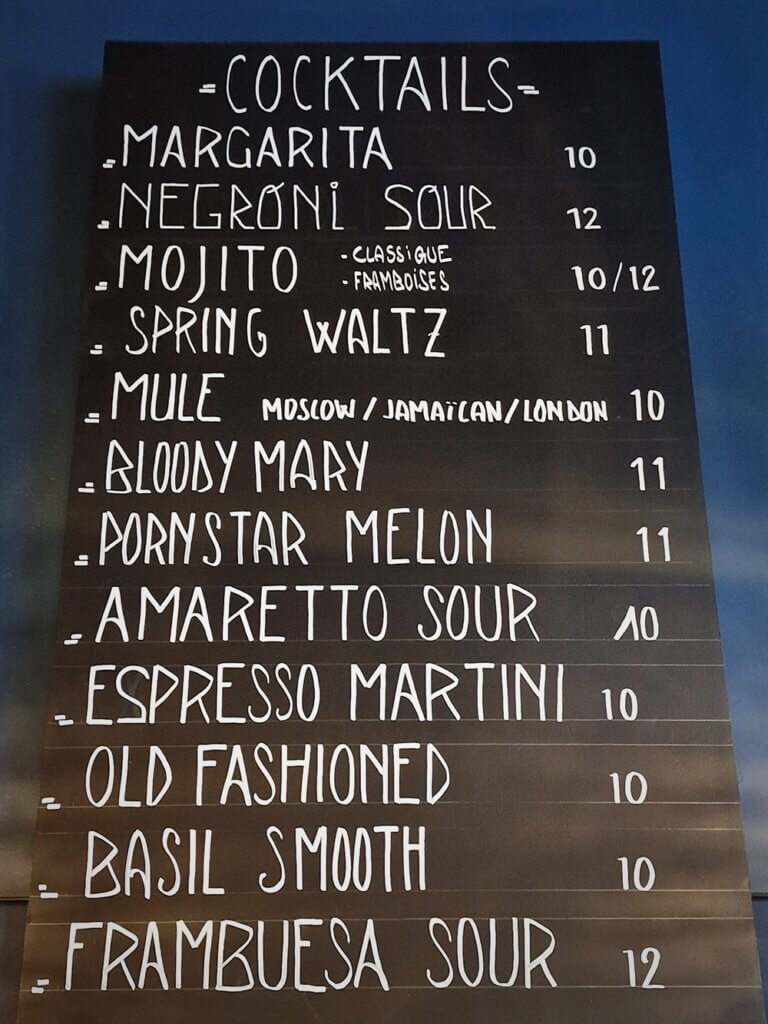 COCKTAILS
MARGARITA 10
NEGRONI SOUR 12
MOJITO - CLASSIQUE - FRAMBOISES 10/12
SPRING WALTZ 11
MULE MOSCOW / JAMAÏCAN / LONDON 10
BLOODY MARY 11
PORNSTAR MELON 11
AMARETTO SOUR 10
ESPRESSO MARTINI 10
OLD FASHIONED 10
BASIL SMOOTH 10
FRAMBUESA SOUR 12